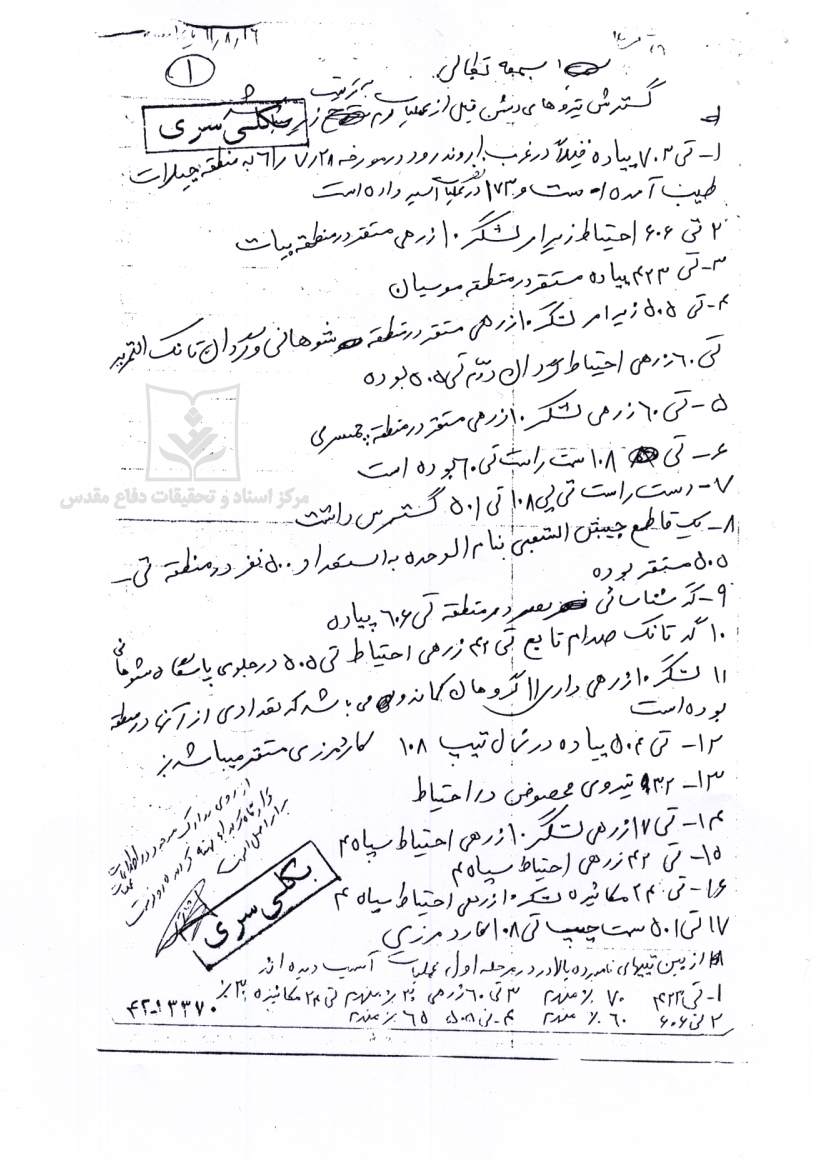 ۶۱/۸/۱۶
۱
بسمه تعالی
گسترش نیروهای دشمن قبل از عملیات محرم به ترتیب زیر
بکلی سری
۱- تی ۷۰۳ پیاده قبلاً در غرب اروند رود در مورخه ۶۱/۷/۲۸ به منطقه چیلات
طیب آمده است و ۱۷۳ نفر در عملیات اسیر داده است
۲ تی ۶۰۶ احتیاط زیر امر لشگر ۱۰ زرهی مستقر در منطقه بیات
۳- تی ۴۲۳ پیاده مستقر در منطقه موسیان
۴- تی ۵۰۵ زیر امر لشگر ۱۰ زرهی مستقر در منطقه شوهانی و گردان تانک
تی ۶۰ زرهی احتیاط گردان دوّم تی ۵۰۵ بوده
۵- تی ۶۰ زرهی لشگر ۱۰ زرهی مستقر در منطقه چمسری
۶- تی ۱۰۸ سمت راست تی ۶۰ بوده است
۷- دست راست تی پی ۱۰۸ تی ۵۰۱ گسترش داشت
۸- یک قاطع جیش الشعبی بنام الوحده به استعداد ۵۰۰ نفر در منطقه تی
۵۰۵ مستقر بوده
۹- گد شناسائی در منطقه تی ۶۰۶ پیاده
۱۰ گد تانک صدام تابع تی ۴۲ زرهی احتیاط تی ۵۰۵ در جلوی پاسگاه شوهانی
بوده است
۱۱ لشگر ۱۰ زرهی دارای ۱۱ گروهان کماندو می باشد که تعدادی از آنها در منطقه
کاردمرزی مستقر میباشند
۱۲- تی ۵۰۴ پیاده در شمال تیپ ۱۰۸
۱۳- نیروی مخصوص در احتیاط
۱۴- تی ۱۷ زرهی لشگر ۱۰ زرهی احتیاط سپاه ۴
۱۵- تی ۴۲ زرهی احتیاط سپاه ۴
۱۶- تی ۲۴ مکانیزه لشگر ۱۰ زرهی احتیاط سپاه ۴
۱۷ تی ۵۰۱ سمت چپ تی ۱۰۸ کاردمرزی
از روی مدارک موجود در اطلاعات
برابر اصل است
بکلی سری
۱۸ از بین تیپهای نامبرده بالا در مرحله اول عملیات آسیب دیده اند
۱- تی ۴۲۳ ۷۰٪ منهدم ۳ تی ۶۰ زرهی ۳۰٪ منهدم تی ۲۴ مکانیزه ۳۰٪
۲ تی ۶۰۶ ۶۰٪ منهدم ۴- تی ۵۰۵ ۶۵٪ منهدم
۴۲-۱۳۳۷۰
مرکز اسناد و تحقیقات دفاع مقدس